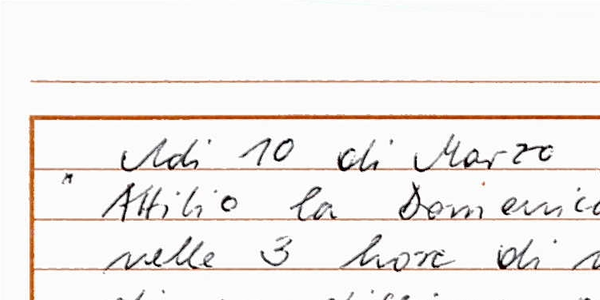 Adi 10 di Marzo
Attilio la Domenica
nelle 3 hore di